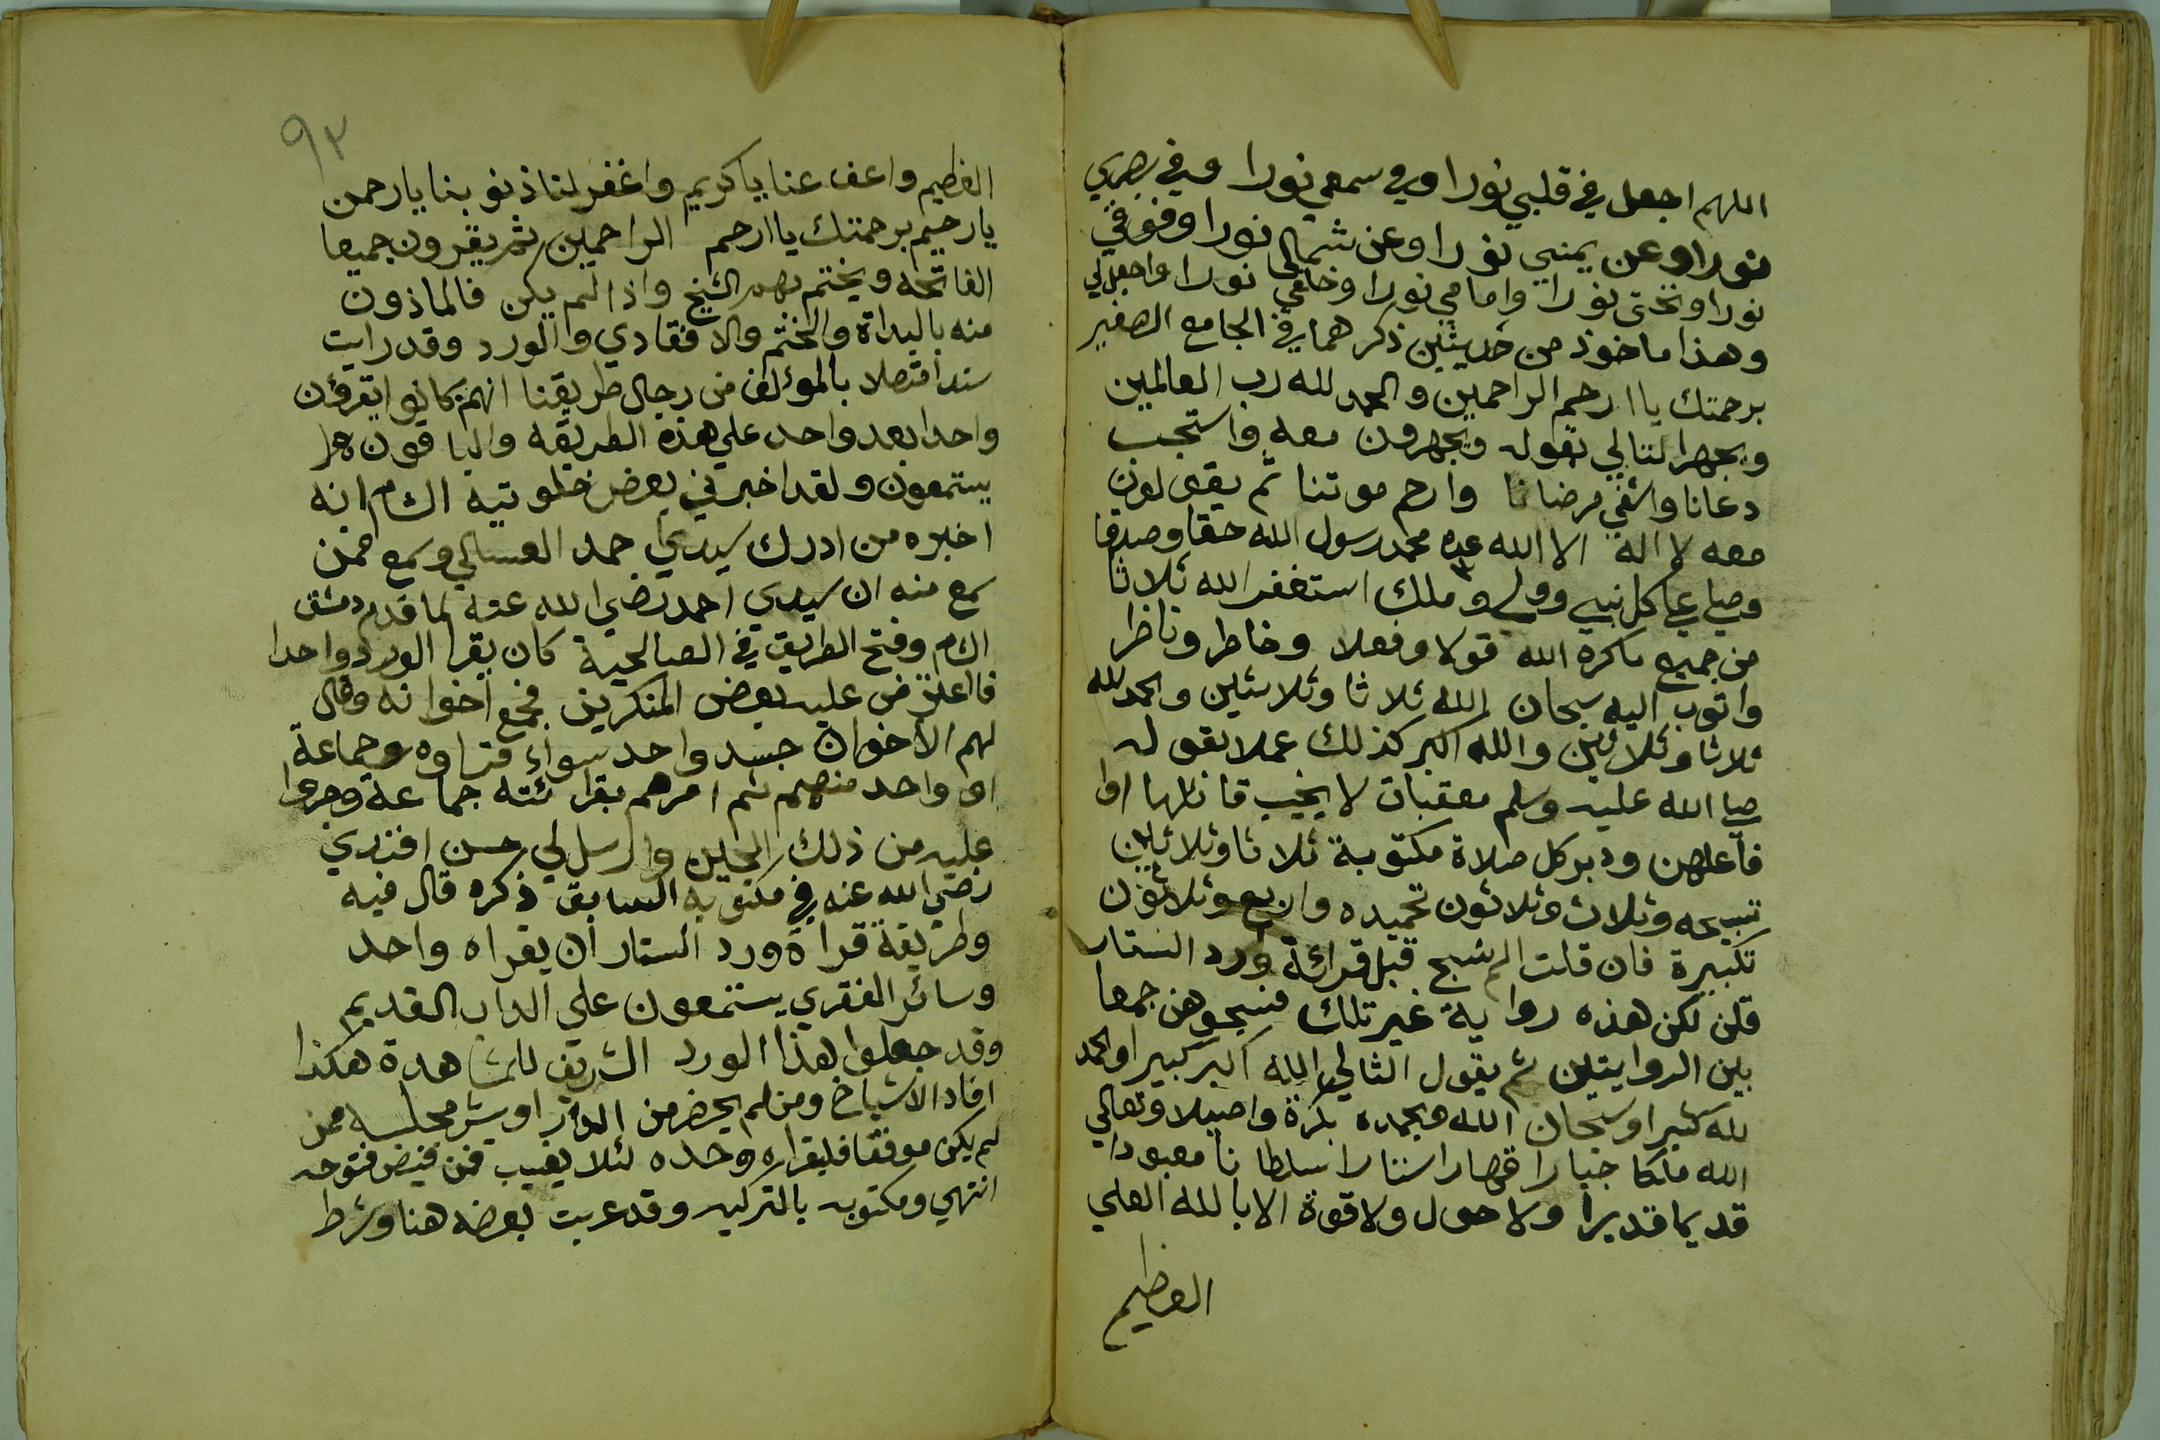 اللهم اجعل في قلبي نورا وفي سمعي نورا وفي بصري
نورا وعن يمني نورا وعن شمالي نورا وفوقي
نورا وتحتي نورا وامامي نورا وخلفي نورا واجعل لي
وهذا ماخوذ من حديثين ذكرهما في الجامع الصغير
برحمتك يا ارحم الراحمين والحمد لله رب العالمين
ويجهر التالي بقوله ويجهرون معه واستجب
دعانا واشفي مرضانا وارحم موتنا ثم يقولون
معه لا اله الا الله محمد رسول الله حقا وصدقا
وصلي علي كل نبي وولي وملك استغفر الله ثلاثا
من جميع ماكره الله قولا وفعلا وخاطر وناظرا
واتوب اليه سبحان الله ثلاثا وثلاثين والحمد لله
ثلاثا وثلاثين والله اكبر كذلك عملا بقوله
صلي الله عليه وسلم معقبات لا يخيب قائلها اوا
فاعلهن ودبر كل صلاة مكتوبة ثلاثا وثلاثين
تسبيحه وثلاث وثلاثون تحميده واربع وثلاثون
تكبيرة فان قلت الم نسبح قبل قرائة ورد الستار
قلن لكن هذه رواية غير تلك فنسبحوهن جمعا
بين الروايتين ثم يقول التالي الله اكبر كبيرا والحمد
لله كثيرا وسبحان الله وبحمده بكرة واصيلا وتعالي
الله ملكا جبارا قهارا ستارا سلطانا معبودا
قديما قديرا ولا حول ولا قوة الا بالله العلي
العظيم
٩٢
العظيم واعف عنا ياكريم واغفر لنا ذنوبنا يارحمن
يارحيم برحمتك ياارحم الراحمين ثم يقرون جميعا
الفاتحه ويختم بهم الشيخ واذا لم يكن فالماذون
منه بالبداة والختم والا فقادي والورد وقد رايت
سندا متصلا بالمؤلف من رجال طريقنا انهم كانوا يقرؤن
واحدا بعد واحد علي هذه الطريقه والباقون
يستمعون ولقد اخبرني بعض خلوتية الشام انه
اخبره من ادرك سيدي حمد العسالي وسمع ممن
سمع منه ان سيدي احمد رضي الله عنه لما قدم دمشق
الشام وفتح الطريق في الصالحية كان يقرا الورد واحدا
فاعترض عليه بعض المنكرين فجمع اخوانه وقال
لهم الاخوان جسد واحد سواء قراوه جماعة
او واحد منهم ثم امرهم بقرائته جماعة وجروا
عليه من ذلك الحين وارسل لي حسن افندي
رضي الله عنه في مكتوبه السابق ذكره قال فيه
وطريقة قراة ورد الستار ان يقراه واحد
وسائر الفقري يستمعون علي الداب القديم
وقد جعلوا هذا الورد الشريف للمشاهدة هكذا
افاد الاشياخ ومن لم يحضر من اوسر مجلسه ممن
لم يكن موفقا فليقراه وحده لئلا يغيب فيض فتوحه
انتهي ومكتوبه بالتركيه وقد عربت بعضه هنا وشرط